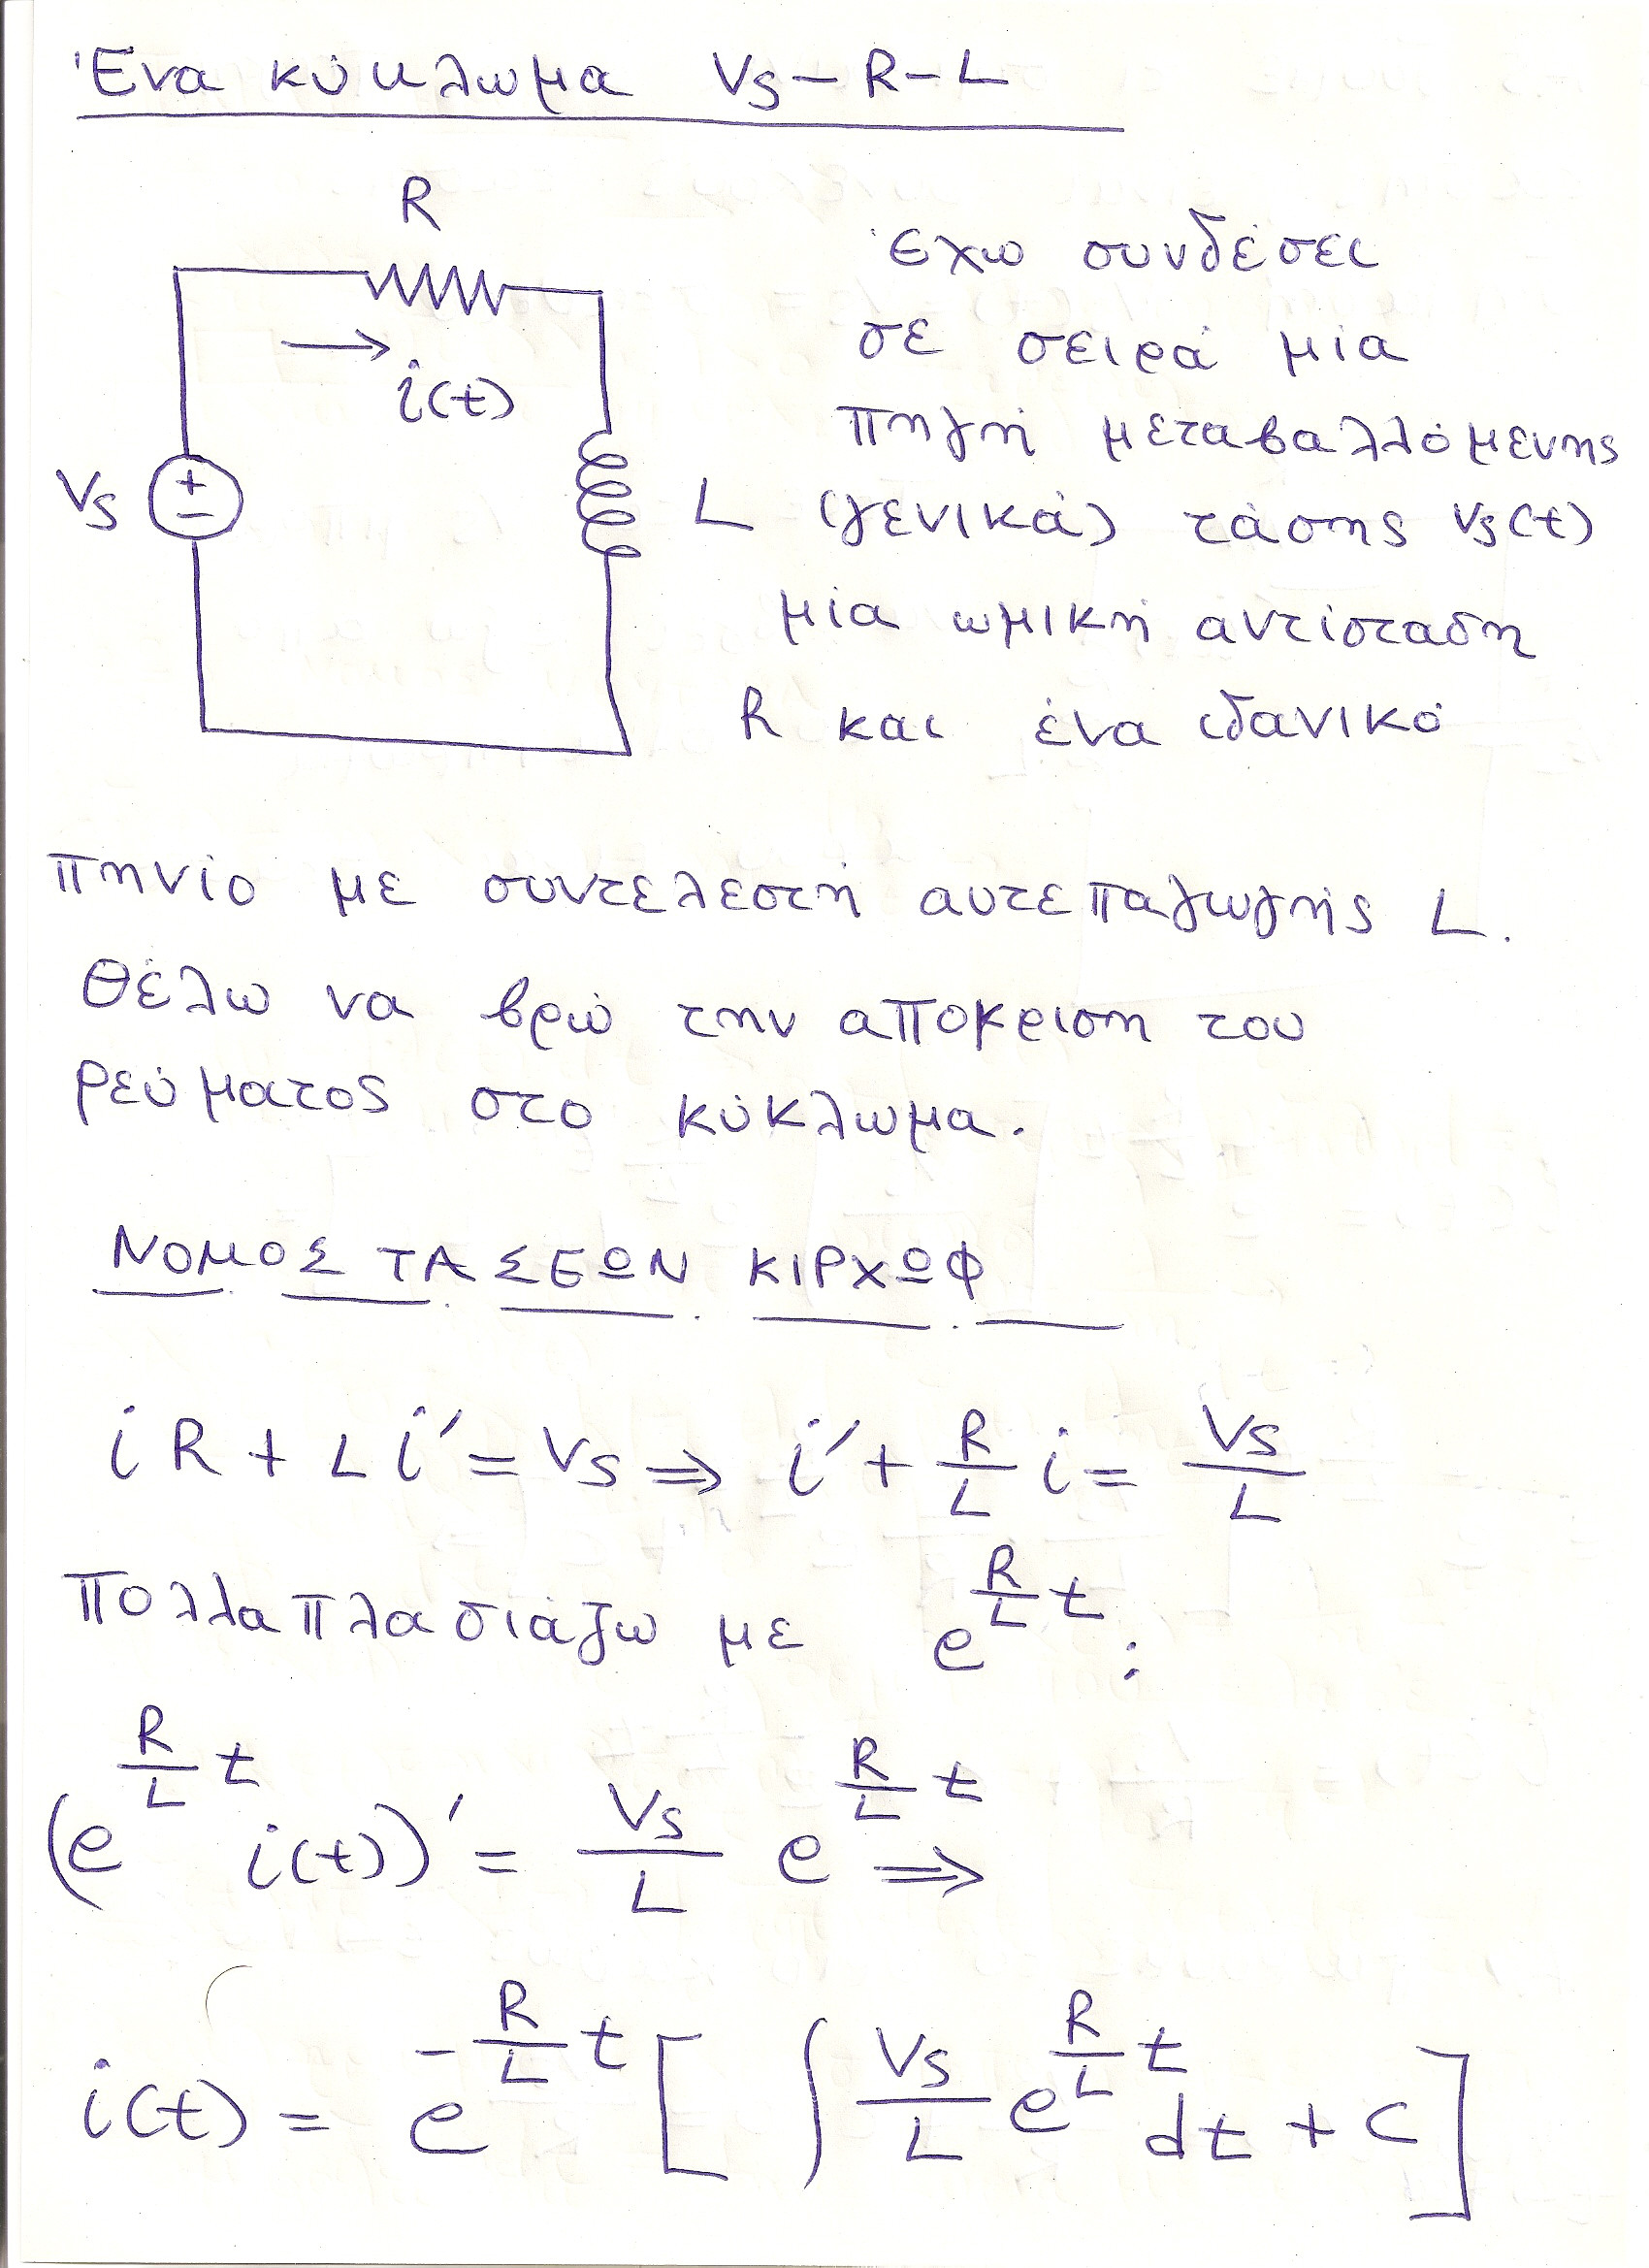 Ένα κύκλωμα Vs-R-L
R
i(t)
Vs
L
Έχω συνδέσει
σε σειρά μία
πηγή μεταβαλλόμενης
(γενικά) τάσης Vs(t)
μία ωμική αντίσταση
R και ένα ιδανικό
πηνίο με συντελεστή αυτεπαγωγής L.
Θέλω να βρώ την αποκριση του
ρεύματος στο κύκλωμα.
ΝΟΜΟΣ ΤΑΣΕΩΝ ΚΙΡΧΩΦ
i R + L i' = Vs ⇒ i' + R/L i = Vs/L
Πολλαπλασιάζω με e^(R/L t) :
(e^(R/L t) i(t))' = Vs/L e^(R/L t) ⇒
i(t) = e^(-R/L t) [ ∫ Vs/L e^(R/L t) dt + c ]